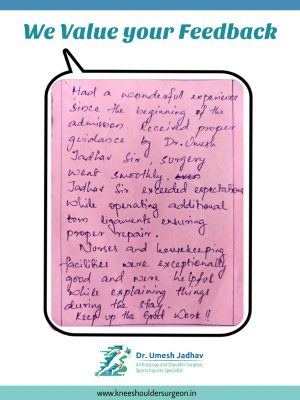 We Value your Feedback
Had a woonderful experience
since the beginning of the
admission. Received proper
guidance by Dr. Umesh
Jadhav Sir, surgery
went smoothly.
Jadhav Sir exceeded expectations
while operating additional
torn ligaments ensuring
proper repair.
Nurses and housekeeping
facilities were exceptionally
good and were helpful
while explaining things
during the stay.
Keep up the Good Work!!
Dr. Umesh Jadhav
Arthroscopy and Shoulder Surgeon,
Sports Injuries Specialist
www.kneeshouldersurgeon.in